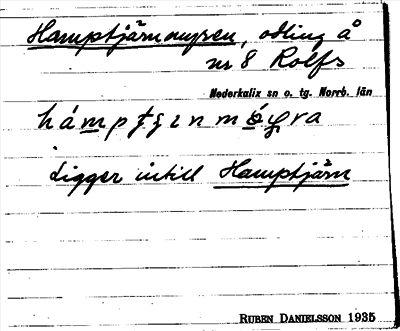 Hamptjärnmyren, odling å
nr 8 Rolfs
Nederkalix sn o. tg. Norrb. län
Ligger intill Hamptjärn
RUBEN DANIELSSON 1935